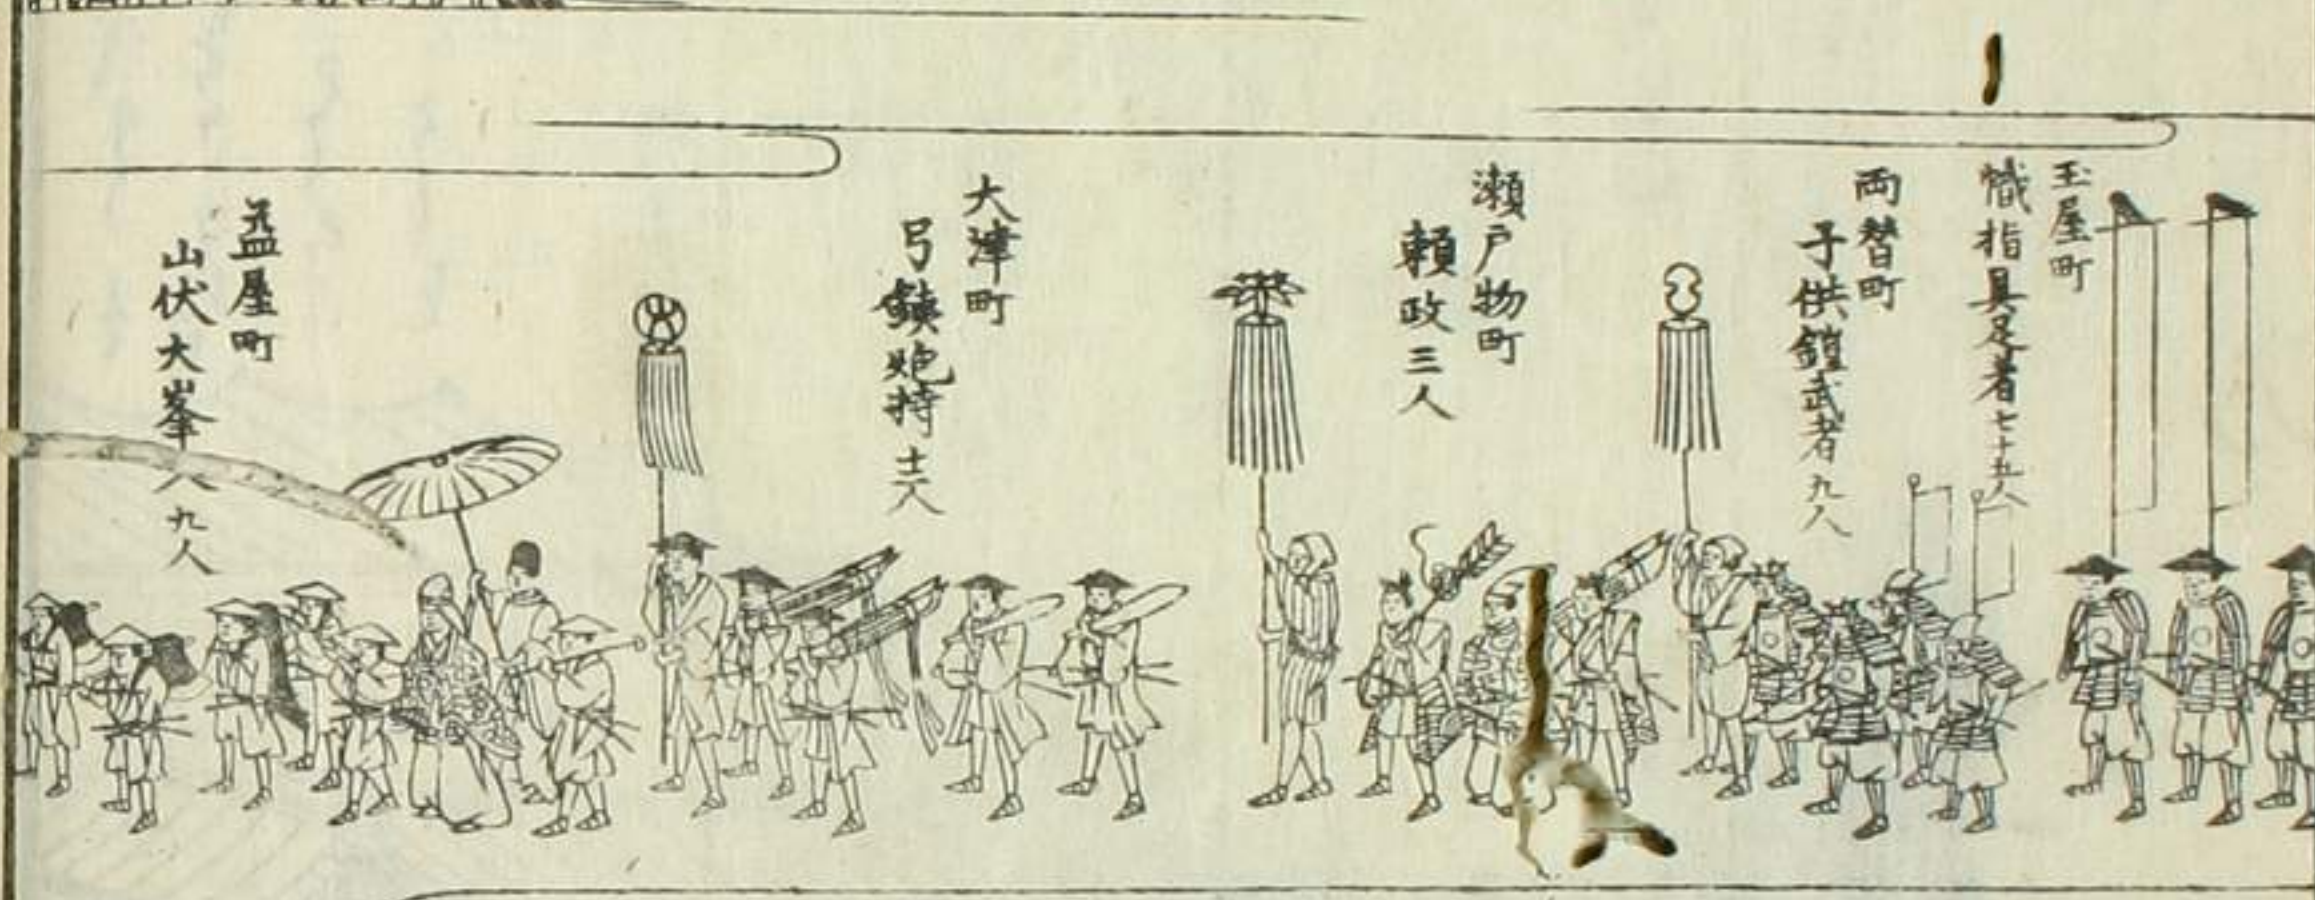 玉屋町
幟指具足者七十五人
両替町
子供鎧武者九人
瀬戸物町
頼政三人
大津町
弓鉄炮持十二人
益屋町
山伏大峯入九人